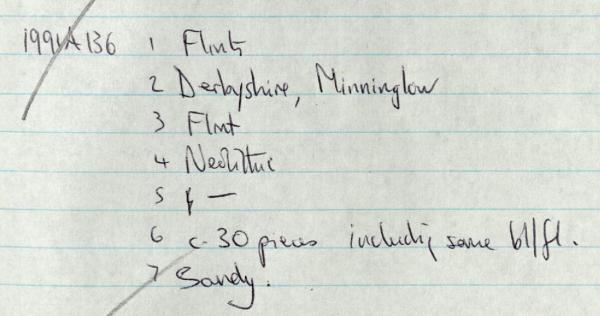 1991A136 1 Flints
2 Derbyshire, Minninglow
3 Flint
4 Neolithic
5 —
6 c. 30 pieces including some bl/fl.
7 Sandy.